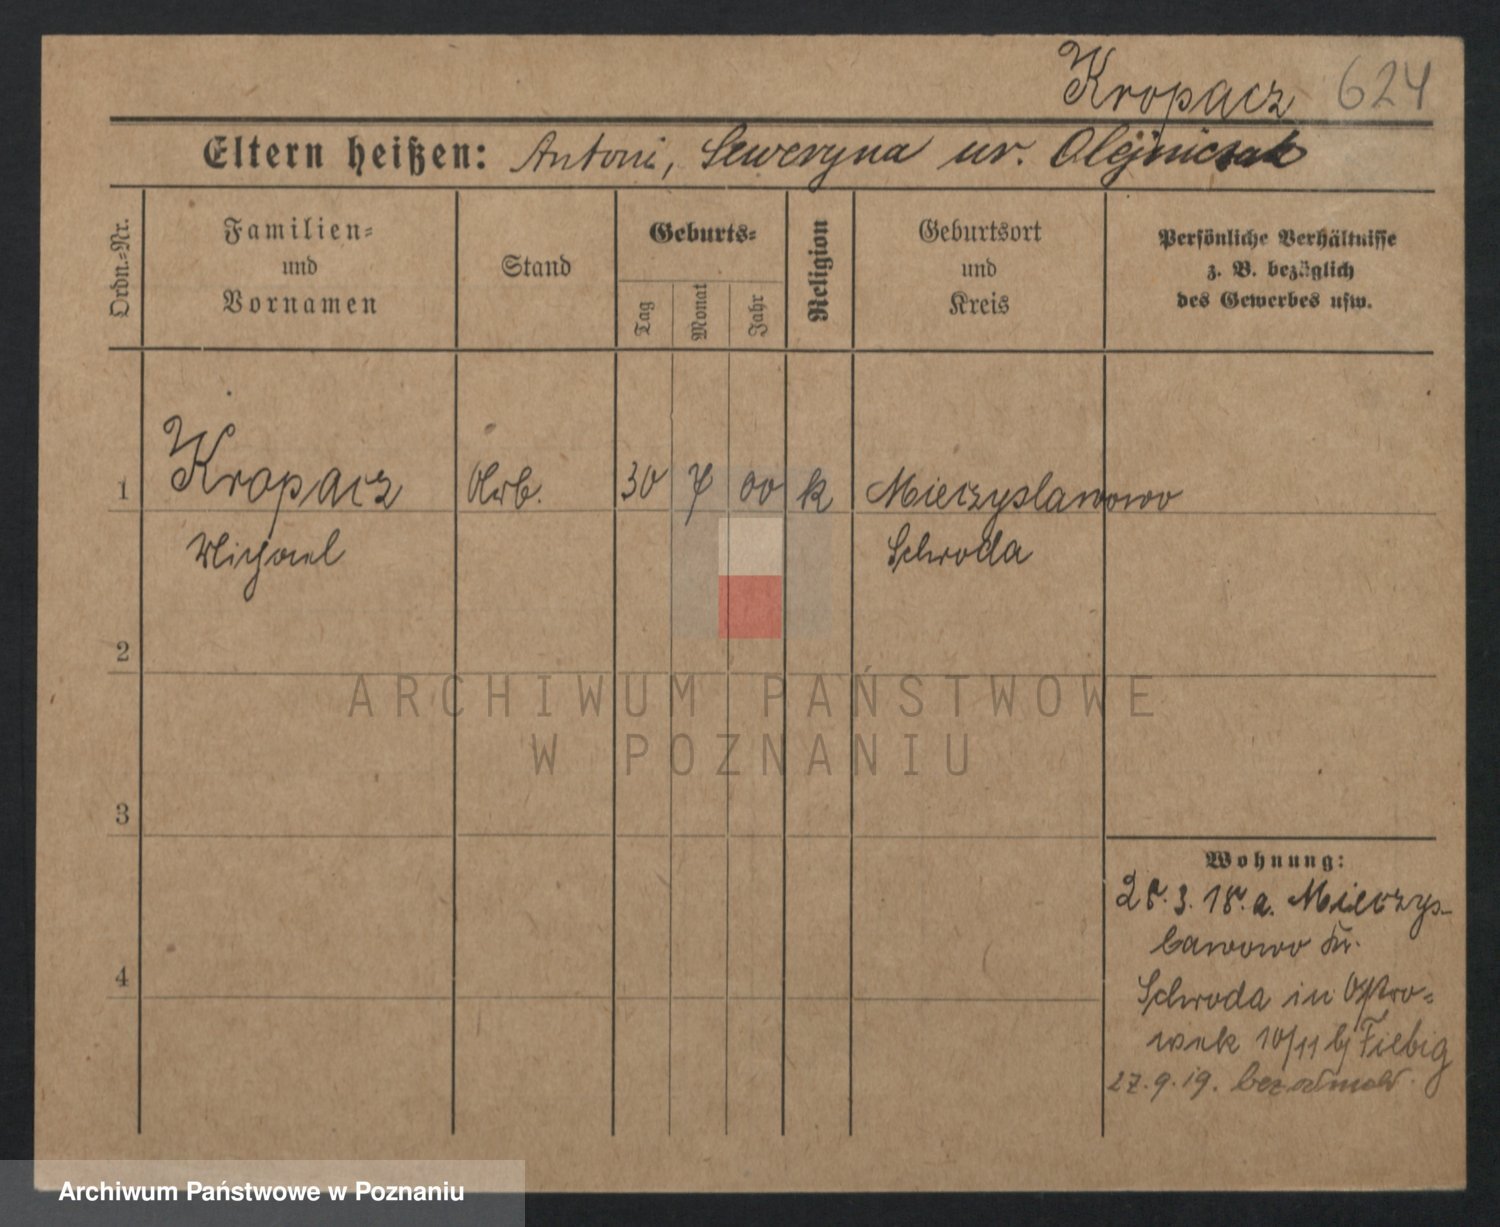 Kropacz 624
Eltern heißen: Antoni, Seweryna ur. Olejniczak
Ordn.-Nr.
Familien-
und
Vornamen
Stand
Geburts-
Tag
Monat
Jahr
Religion
Geburtsort
und
Kreis
Persönliche Verhältnisse
z. B. bezüglich
des Gewerbes usw.
1 Kropacz Arb. 30 7 00 k Mieczyslawowo
Michael Schroda
2
3
4
Wohnung:
28.3.18. a. Mieczys-
lawowo Kr.
Schroda in Ostro-
wek 10/11 bj Fiebig
27.9.19.
ARCHIWUM PAŃSTWOWE
W POZNANIU
Archiwum Państwowe w Poznaniu